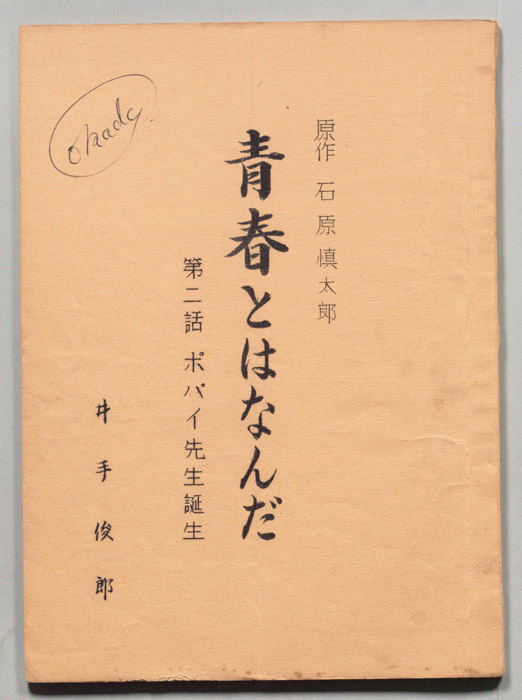 原作 石原慎太郎
青春とはなんだ
第二話 ポパイ先生誕生
井手俊郎